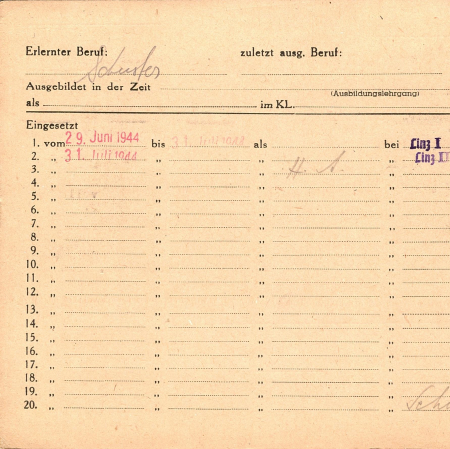 Erlernter Beruf: Schuster zuletzt ausg. Beruf:
Ausgebildet in der Zeit
(Ausbildungslehrgang)
als im KL.
Eingesetzt
1. vom 29. Juni 1944 bis 31. Juli 1944 als bei Linz I
2. „ 31. Juli 1944 „ „ „ Linz III
3. „ „ „ H. A. „
4. „ „ „ „
5. „ „ „ „
6. „ „ „ „
7. „ „ „ „
8. „ „ „ „
9. „ „ „ „
10. „ „ „ „
11. „ „ „ „
12. „ „ „ „
13. „ „ „ „
14. „ „ „ „
15. „ „ „ „
16. „ „ „ „
17. „ „ „ „
18. „ „ „ „
19. „ „ „ „
20. „ „ „ „